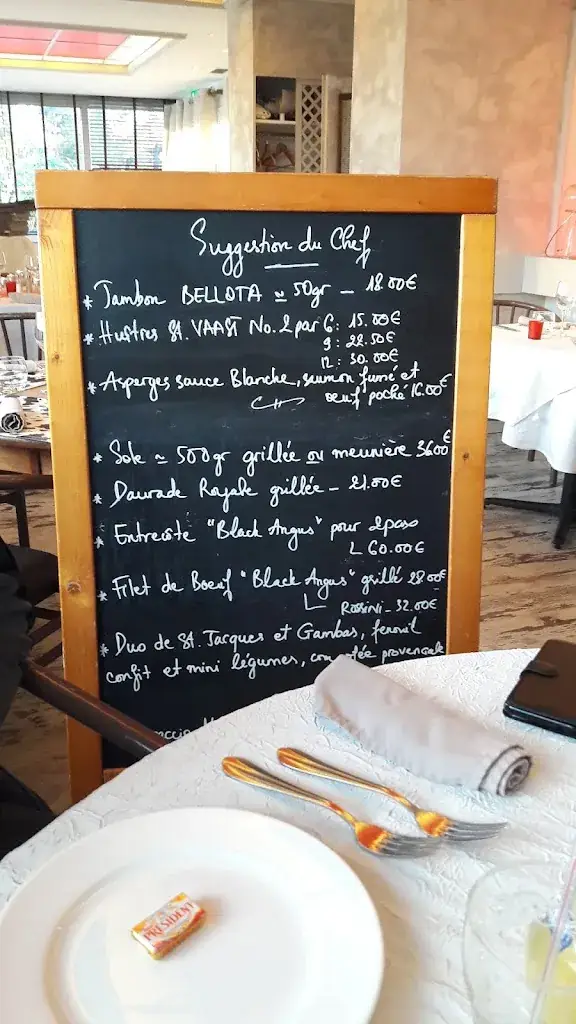 Suggestion du Chef
* Jambon BELLOTA ≃ 50gr - 18.00€
* Huîtres St. VAAST No. 2 par 6: 15.00€
9: 22.50€
12: 30.00€
* Asperges sauce Blanche, saumon fumé et
oeuf poché 16.00€
* Sole ≃ 500gr grillée ou meunière 36.00€
* Daurade Royale grillée - 21.00€
* Entrecôte "Black Angus" pour 2 pers
60.00€
* Filet de Boeuf "Black Angus" grillé 28.00€
Rossini - 32.00€
* Duo de St. Jacques et Gambas, fenouil
confit et mini légumes, provençale
PRÉSIDENT